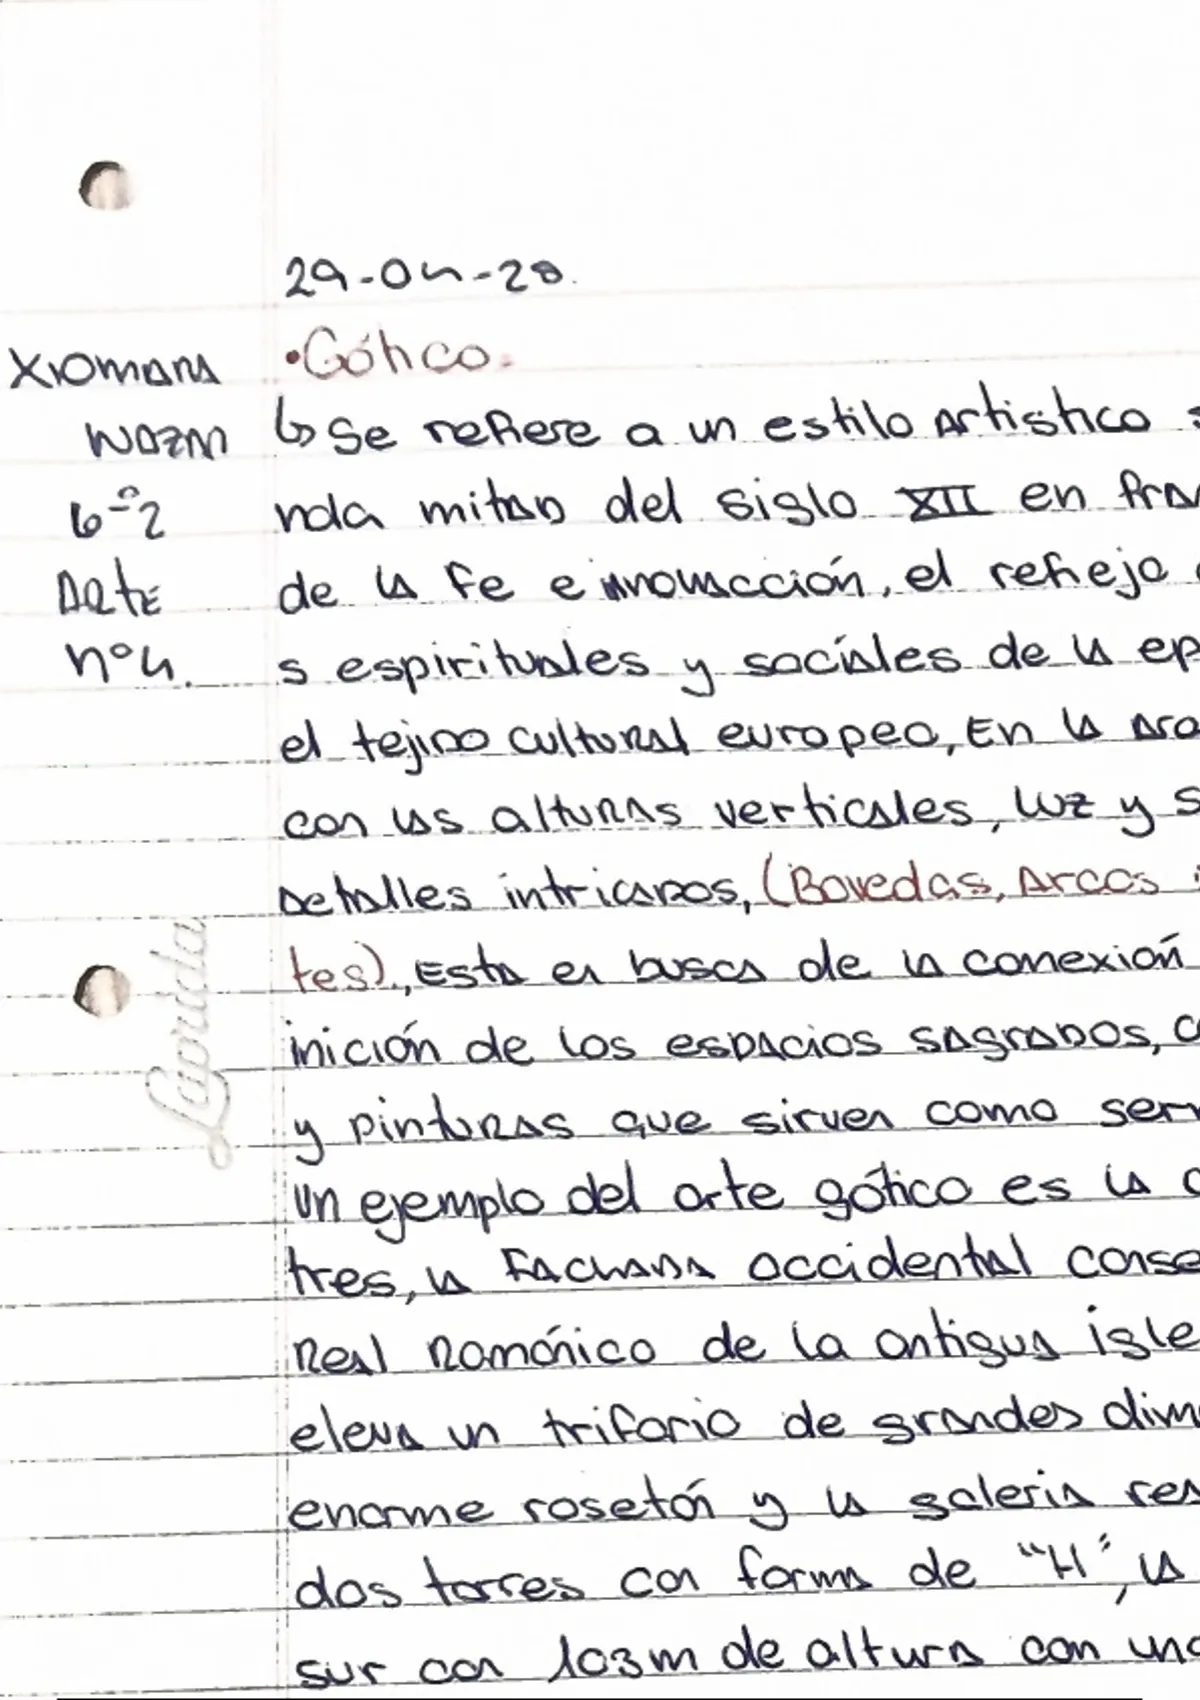 29-04-20.
Xiomara
Wazni
6-º2
Arte
nº4.
•Gótico.
↳ Se refiere a un estilo Artistico
nda mitad del siglo XII en fra
de la fe e innovacción, el reflejo
s espirituales y sociales de la ep
el tejido cultural europeo, En la arq
con las alturas verticales, luz y s
Detalles intricados, (Bovedas, Arcos
tes)., Esta en busca de la conexión
inición de los espacios sagrados, c
y pinturas que sirven como ser
Un ejemplo del arte gótico es la c
tres, la fachada occidental conse
Real Románico de la antigua igle
eleva un triforio de grandes dim
enorme rosetón y la galeria rea
dos torres con forma de "H", la
sur con 103m de altura con una
Laprida